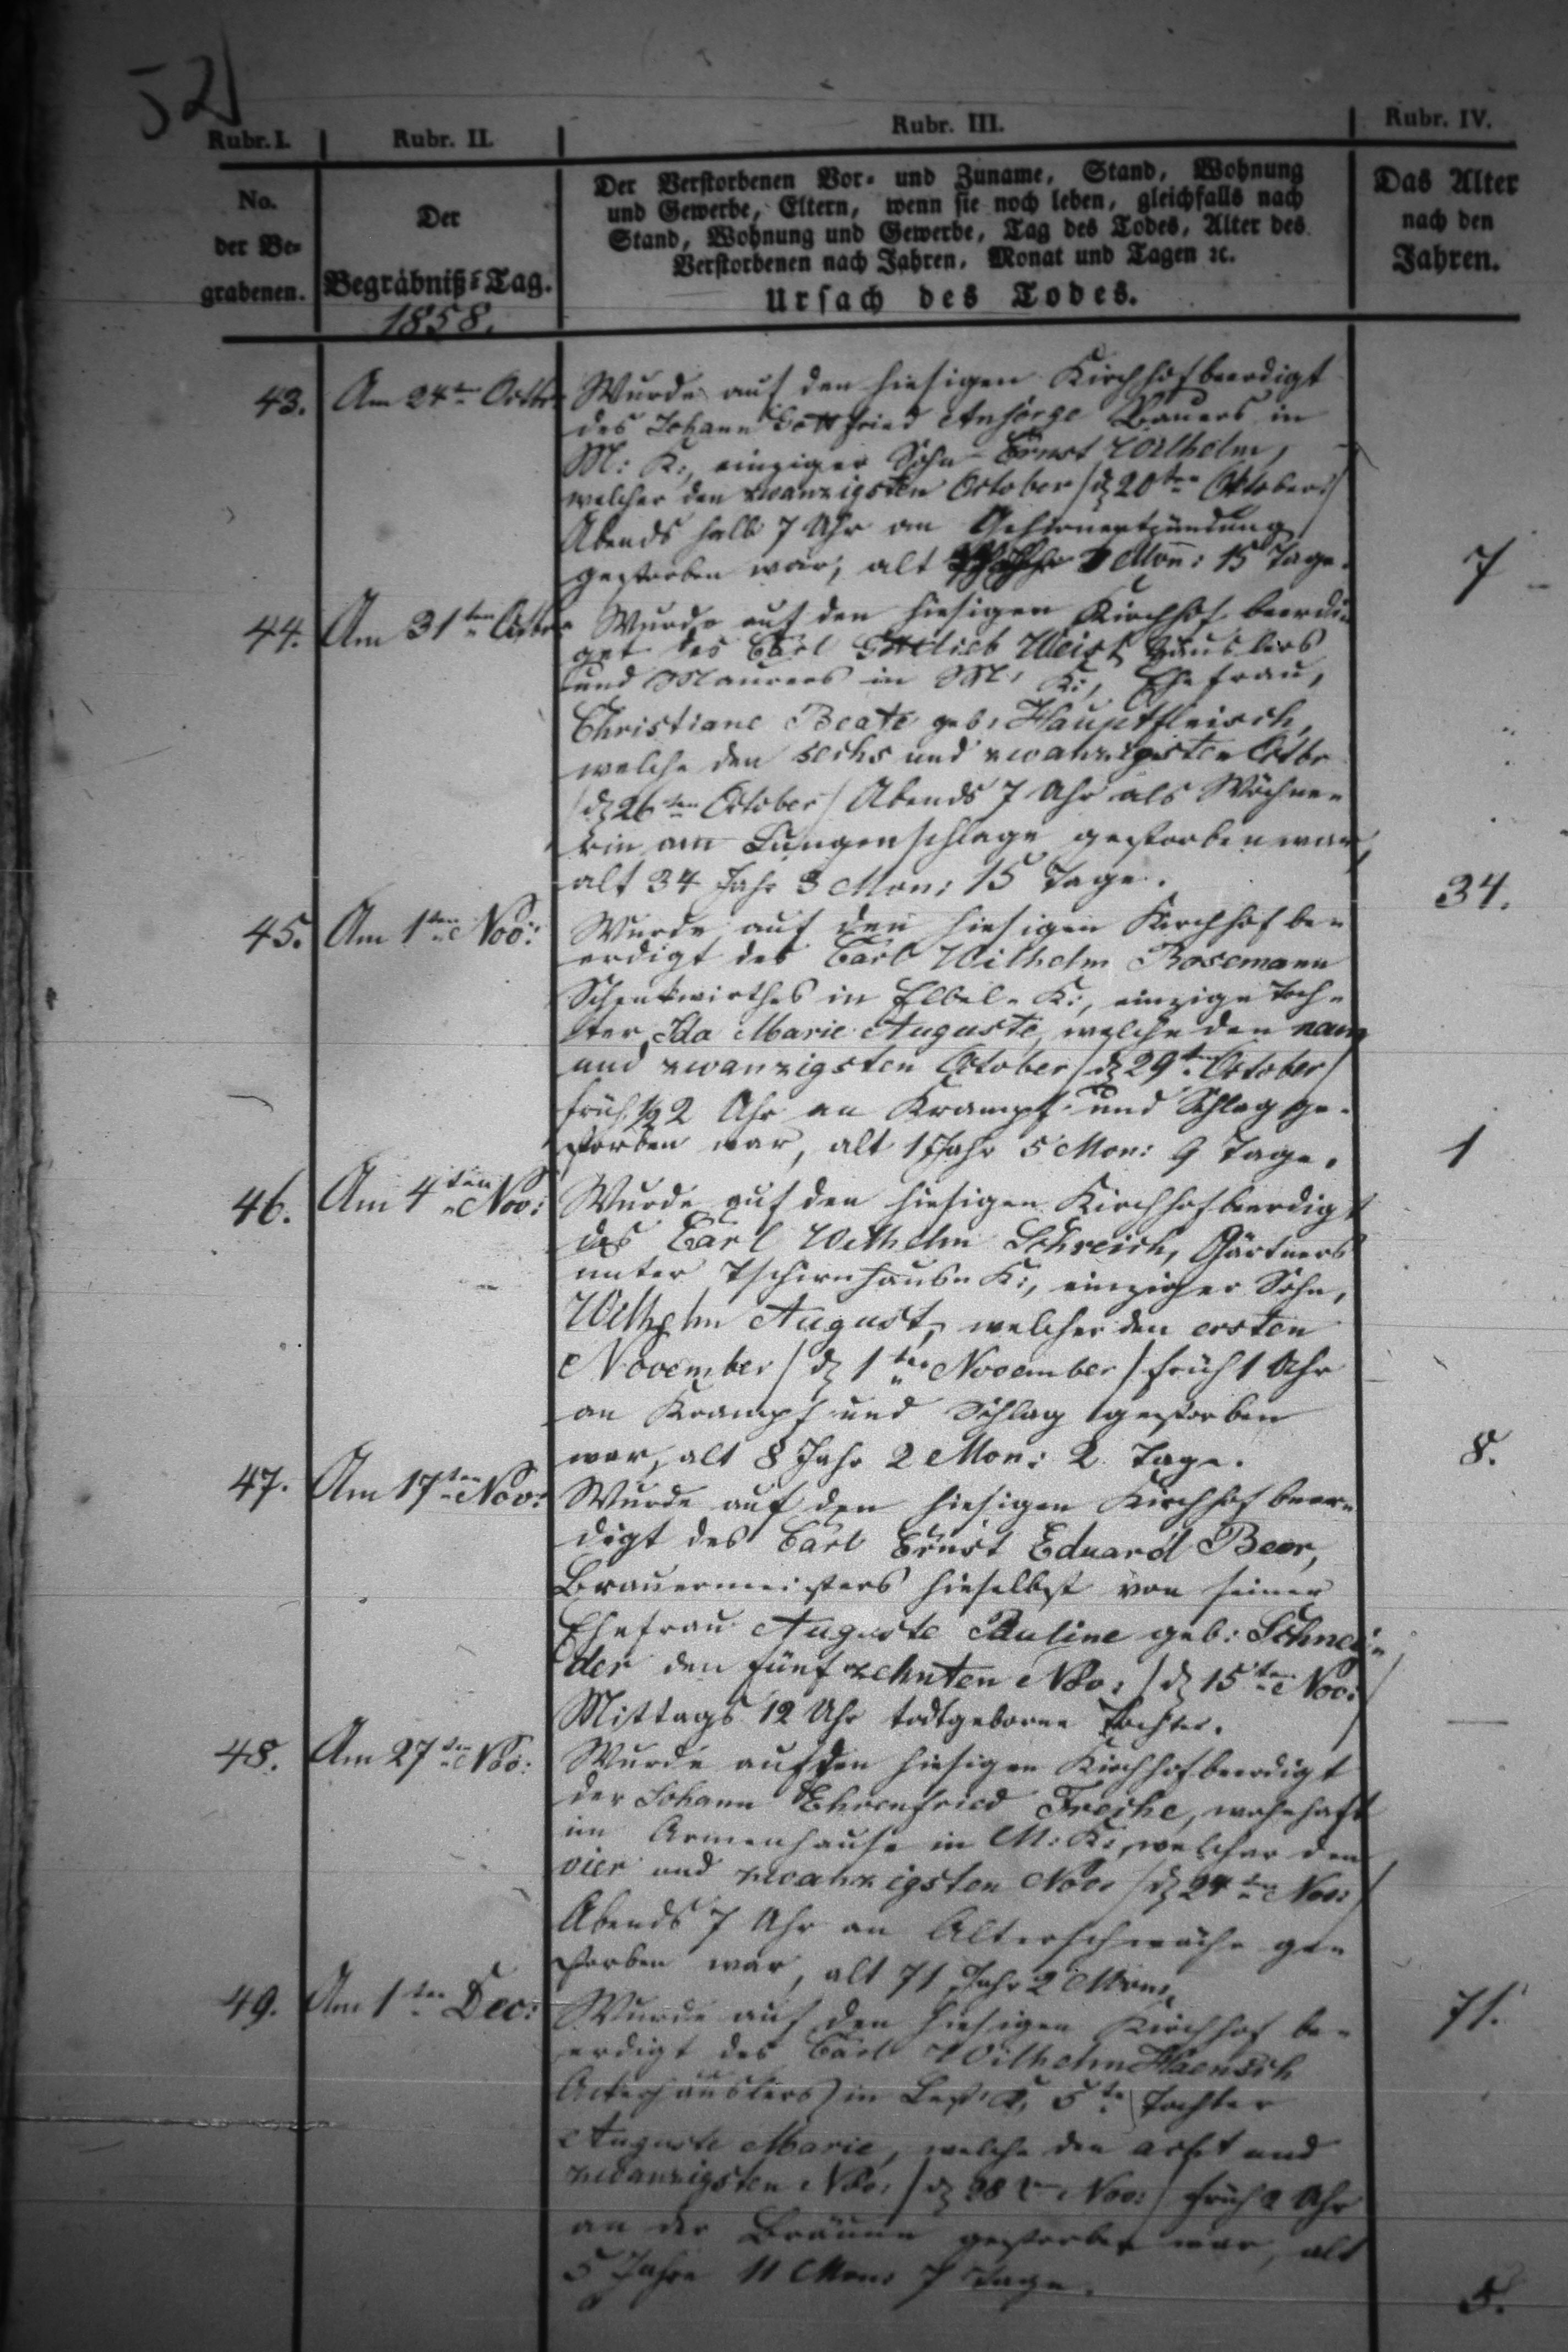 52
Rubr. I. Rubr. II. Rubr. III. Rubr. IV.
No. der Be-grabenen.
Der Begräbniß-Tag.
1858.
Der Verstorbenen Vor- und Zuname, Stand, Wohnung
und Gewerbe, Eltern, wenn sie noch leben, gleichfalls nach
Stand, Wohnung und Gewerbe, Tag des Todes, Alter des
Verstorbenen nach Jahren, Monat und Tagen ꝛc.
Ursach des Todes.
Das Alter
nach den
Jahren.
43. Am 24ten Octbr. Wurde auf den hiesigen Kirchhof beerdigt
des Johann Gottfried Ansorge Bauers in
M: K:, einziger Sohn Ernst Wilhelm,
welcher den zwanzigsten October / d 20ten October /
Abends halb 7 Uhr an Gehirnentzündung
gestorben war, alt Mon: 15 Tage. 7
44. Am 31ten Octbr Wurde auf den hiesigen Kirchhof beerdi=
get des Carl Gottlieb Weist Häuslers
und Maurers in M: K:, Ehefrau,
Christiane Beate geb: Hauptfleisch,
welche den sechs und zwanzigsten Octbr
/ d 26ten October / Abends 7 Uhr als Wöchne=
rin am Lungenschlage gestorben war,
alt 34 Jahr 3 Mon: 15 Tage. 34.
45. Am 1ten Nov: Wurde auf den hiesigen Kirchhof be=
erdigt des Carl Wilhelm Rosemann
Schenkwirthes in Elbel= K:, einzige Toch=
ter Ida Marie Auguste, welche den neun
und zwanzigsten October / d 29ten October /
früh ½ 2 Uhr an Krampf und Schlag ge=
storben war, alt 1 Jahr 5 Mon: 9 Tage. 1
46. Am 4ten Nov: Wurde auf den hiesigen Kirchhof beerdigt
des Carl Wilhelm Schreich, Gärtners
unter Tschirnhaus= K:, einziger Sohn,
Wilhelm August, welcher den ersten
November / d 1ten November / früh 1 Uhr
an Krampf und Schlag gestorben
war, alt 8 Jahr 2 Mon: 2 Tage. 8.
47. Am 17ten Nov: Wurde auf den hiesigen Kirchhof beer=
digt des Carl Ernst Eduard Beer,
Brauermeisters hieselbst von seiner
Ehefrau Auguste Pauline geb: Schnei=
der den fünfzehnten Nov: / d 15ten Nov: /
Mittags 12 Uhr todtgeborne Tochter. —
48. Am 27ten Nov: Wurde auf den hiesigen Kirchhof beerdigt
der Johann Ehrenfried Froehe, wohnhaft
im Armenhause in M: K:, welcher den
vier und zwanzigsten Nov: / d 24ten Nov: /
Abends 7 Uhr an Altersschwäche ge=
storben war, alt 71 Jahr 2 Mon: 71.
49. Am 1ten Dec: Wurde auf den hiesigen Kirchhof be=
erdigt des Carl Wilhelm Haensch
Ackerhäuslers in K, 5te Tochter
Auguste Marie, welche den acht und
zwanzigsten Nov: / d 28ten Nov: / früh 2 Uhr
an der Bräune gestorben war, alt
5 Jahre 11 Mon: 7 Tage. 5.